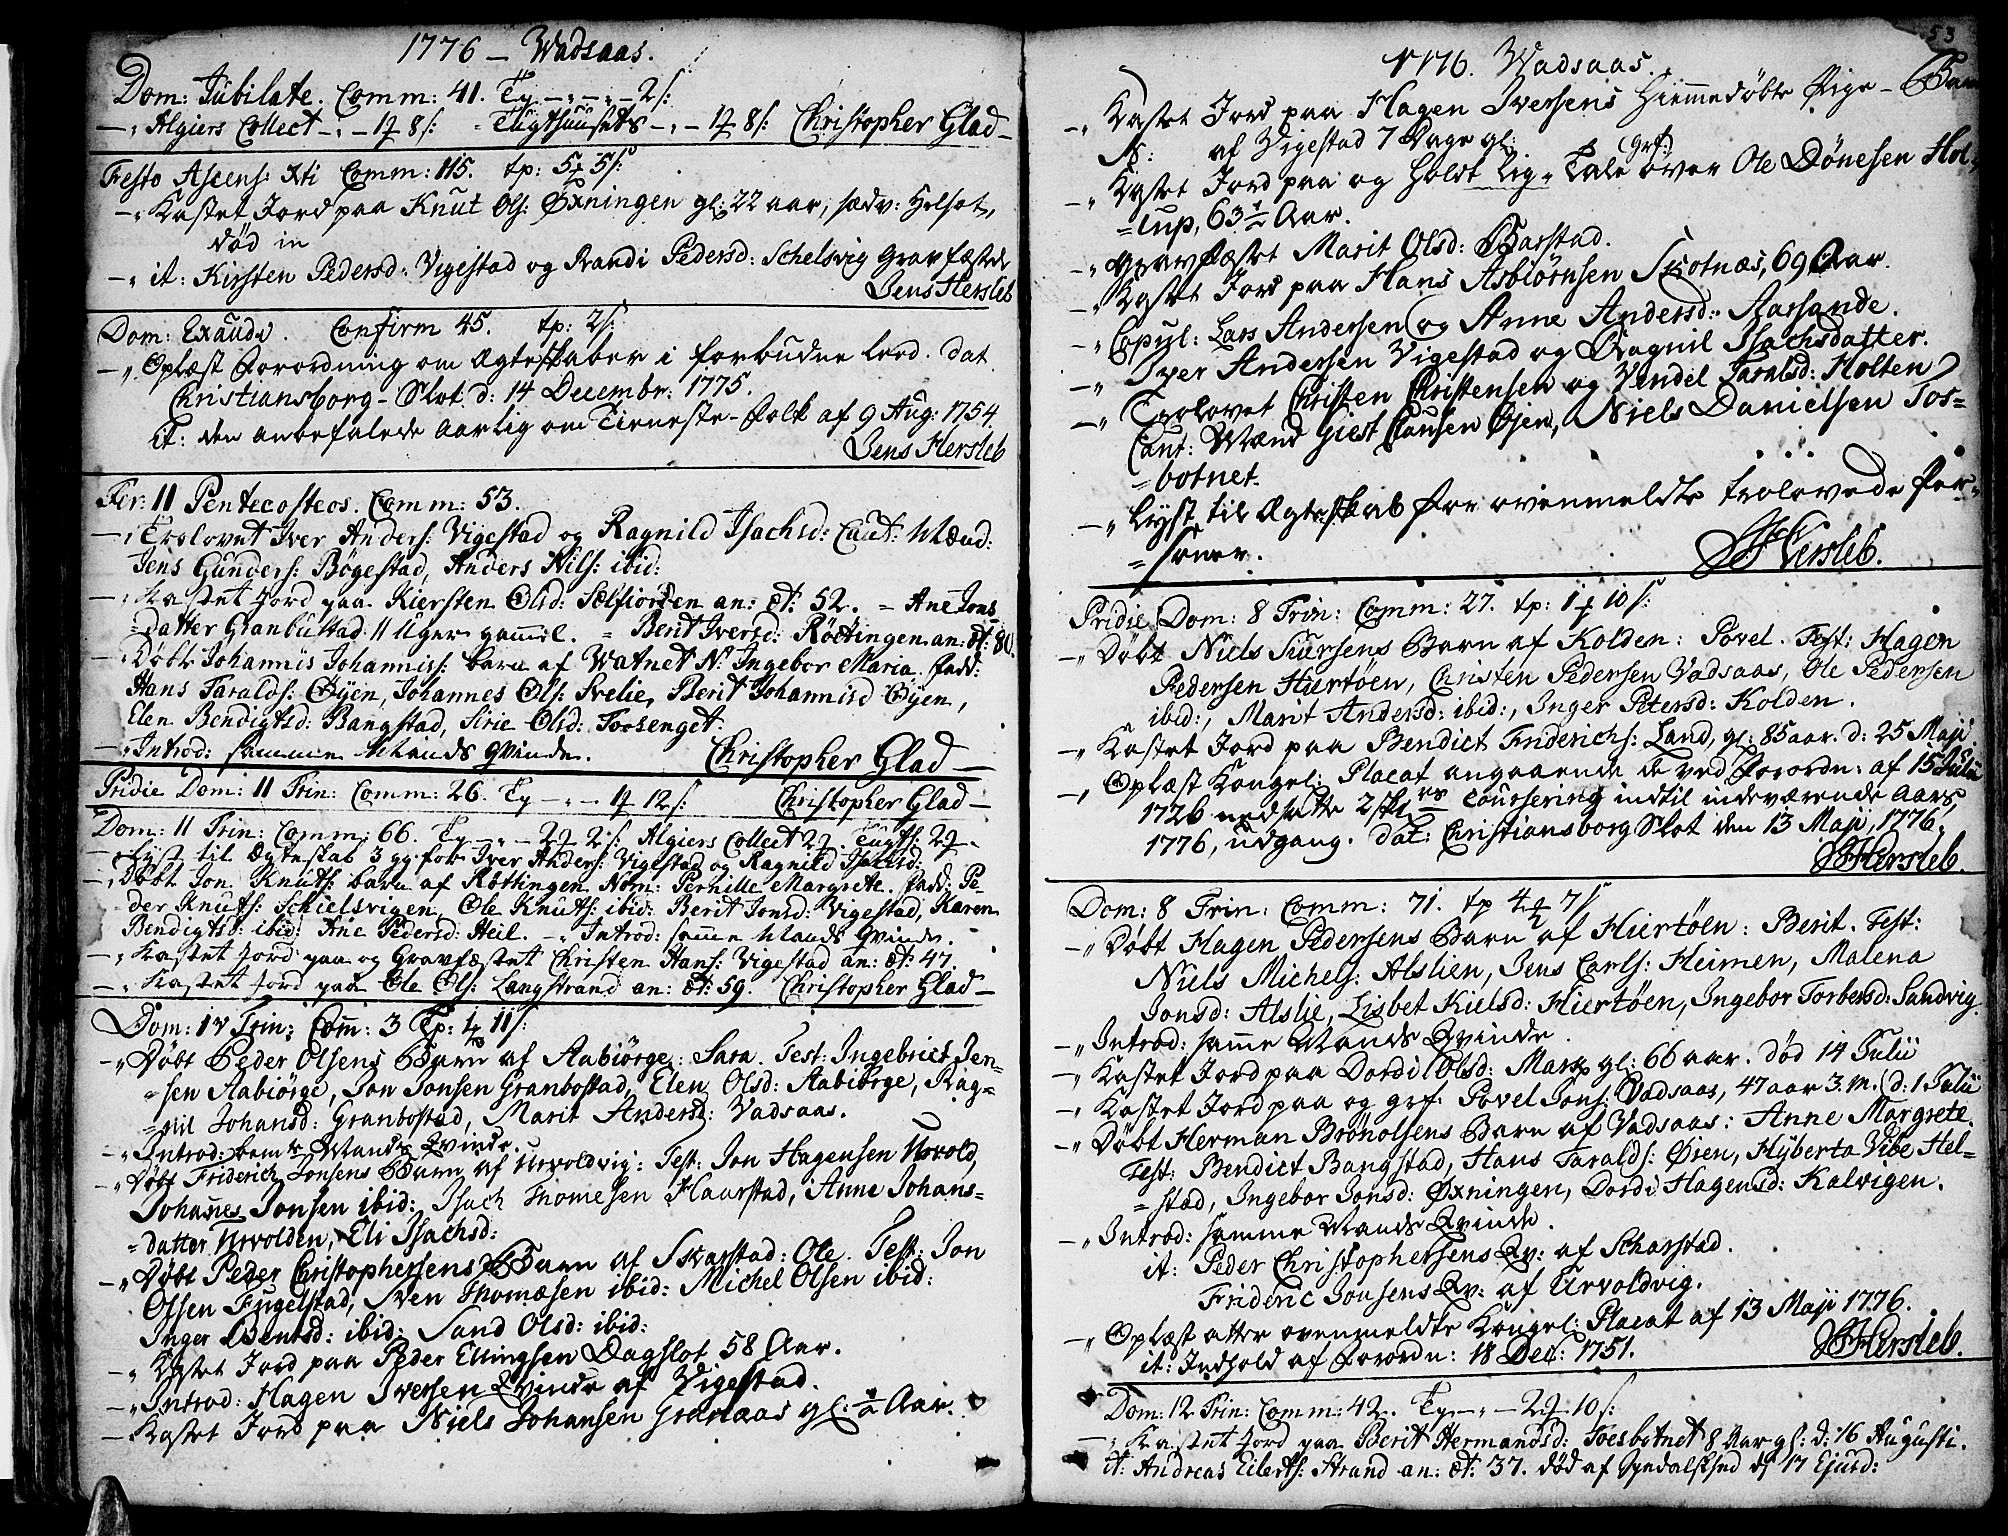 1776 – Wadsaas.
Dom: Jubilate. Comm: 41. Tp – „ – „ – 2 s:
– „ Algiers Collect – „ – 8 s: Tugthusets – „ – 8 s: Christopher Glad –
Festo Ascens: Xti Comm: 115. tp: 5 5 s:
– „ Kastet Jord paa Knut Ols: Øxningen gl: 22 aar, sædv: Helsot,
død in
– „ it: Kirsten Pedersd: Vigestad og Randi Pedersd: Schelsvig gravfæstede
Jens Hersleb
Dom: Exaudi. Confirm 45. tp: 2 s:
– „ Oplæst Forordning om Ægteskaber i forbudne leed. dat
Christiansborg – Slot d: 14 Decembr: 1775.
it: den anbefalede aarlig om Tieneste-Folk af 9 Aug: 1754.
Jens Hersleb
Fer: II Pentecosteos. Comm: 53.
– „ Trolovet Iver Anders: Vigestad og Ragnild Isachsd: Caut: Mænd:
Jens Gunders: Bøgestad, Anders Nils: ibid:
– „ Kastet Jord paa Kiersten Olsd: Selfiorden an: æt: 52. – Ane Jons
=datter Granbustad 11 Uger gammel. = Berit Iversd: Røttingen an: æt: 80.
– „ Døbt Johannis Johanniss: barn af Watnet N: Ingebor Maria. fadd:
Hans Taralds: Øyen, Johannes Ols: Srelie, Berit Johannisd Øyen,
Elen Bendigtsd: Bangstad, Sirie Olsd: Torsenget.
– „ Introd: samme Mands Qvinde. Christopher Glad –
Pridie Dom: II Trin: Comm: 26. Tp – „ – 12 s: Christopher Glad –
Dom: II Trin: Comm: 66. Tp – „ – 2 2 s: Algiers Collect 2 . Tugth 2 .
– „ Lyst til Ægteskab 3 gg: for Iver Anders: Vigestad og Ragnild Isachsd:
– „ Døbt Jon Knuts: barn af Røttingen Nom: Pernille Margrete. fadd: Pe-
der Knuts: Schielsvigen, Ole Knuts: ibid: Berit Jonsd: Vigestad, Karen
Bendigts: ibid: Ane Pedersd: Heil. – „ Introd: samme Mands Qvinde.
– „ Kastet Jord paa og Gravfæstet Christen Hans: Vigestad an: æt: 47.
– „ Kastet Jord paa Ole Ols: Langstrand an: æt: 59. Christopher Glad –
Dom: IV Trin: Comm: 3 Tp: 1 11 s:
– „ Døbt Peder Olsens Barn af Aabiørge: Sara. Test: Ingebrict Jen-
=sen Aabiørge, Jon Jonsen Granbostad, Elen Olsd: Aabiørge, Rag=
=nil Johansd: Granbostad, Marit Andersd: Vadsaas.
– „ Introd: samme Mands Qvinde
– „ Døbt Friderich Jonsens Barn af Urvoldvig: Test: Jon Hagensen Urvold,
Johanes Jonsen ibid: Isach Thomesen Haarstad, Anne Johans=
=datter Urvolden, Eli Isachsd:
– „ Døbt Peder Christophersens Barn af Skarstad: Ole. Test: Jon
Olsen Fugelstad, Sven Thomæsen ibid: Michel Olsen ibid:
Inger Bentsd: ibid: Sand Olsd: ibid:
– „ Kastet Jord paa Peder Ellingsen Dagslot 58 Aar.
– „ Introd: Hagen Iversen Qvinde af Vigestad.
– Kastet Jord paa Niels Johansen Granaas gl: ½ Aar.
53
1776. Vadsaas.
– „ Kastet Jord paa Hagen Iversens Hiemmedøbte Pige – Barn
N: af Vigestad 7 Dage gl:
– „ Kastet Jord paa og holdt Lig-Tale grf: over Ole Dønesen Hol-
=lup, 63 ½ Aar.
– „ gravfæstet Marit Olsd: Barstad.
– „ Kastet Jord paa Hans Asbiørnsen Skotnæs, 69 Aar.
– „ Copul: Lars Andersen og Anne Andersd: Aarsande.
– „ Iver Andersen Vigestad og Ragnil Isachsdatter.
– „ Trolovet Christen Christensen og Vendel Taralsd: Holten
Caut: Mænd Giert Clausen Øien, Niels Danielsen Tos=
=botnet.
– „ Lyst til Ægteskab for ovenmeldte trolovede Per-
=soner.
JHersleb.
Pridie Dom: 8 Trin: Comm: 27. tp: 1 10 s:
– „ Døbt Niels Siursens Barn af Kolden: Povel. Test: Hagen
Pedersen Hiertøen, Christen Pedersen Vadsaas, Ole Pedersen
ibid:, Marit Andersd: ibid:, Inger Petersd: Kolden.
– „ Kastet Jord paa Bendict Friderichs: Land, gl: 85 aar. d: 25 Maji
– „ Oplæst Kongel: Placat angaaende de ved Forordn: af 15 Julii
1726 nedsatte 2 Courssering indtil indeværende Aars,
1776, udgang. dat: Christiansborg Slot den 13 Maji, 1776.
JHersleb.
Dom: 8 Trin: Comm: 71. tp 4 7 s
– „ Døbt Hagen Pedersens Barn af Hiertøen: Berit. Test:
Niels Michels: Alslien, Jens Carls: Heimen, Malena
Jonsd: Alslie, Lisbet Kielsd: Hiertøen, Ingebor Torbersd: Sandvig.
– „ Introd: samme Mands Qvinde.
– „ Kastet Jord paa Dordi Olsd: Marø gl: 66 aar. død 14 Julii
– „ Kastet Jord paa og grf: Povel Jons: Vadsaas, 47 aar 3. m. d: 1 Julii
– „ Døbt Herman Brønolsens Barn af Vadsaas: Anne Margrete.
Test: Bendict Bangstad, Hans Taralds: Øien, Hyberta Vibe Hel=
=stad, Ingebor Jonsd: Øxningen, Dordi Hagensd: Kalvigen.
– „ Introd: samme Mands Qvinde.
it: Peder Christophersens Qv: af Scharstad.
Frideric Jonsens Qv: af Urvoldvig.
– „ Oplæst atter ovenmeldte Kongel: Placat af 13 Maji 1776.
it: Indhold af Forordn: 18 Dec: 1751. JHersleb.
Dom: 12 Trin: Comm: 42. Tp – „ – 2 10 s:
– „ Kastet Jord paa Berit Hermandsd: Tosbotnet 8 Aar gl: d: 16 Augusti.
it: Andreas Eilerts: Strand an: æt: 37. død af d: 17 Ejusd: